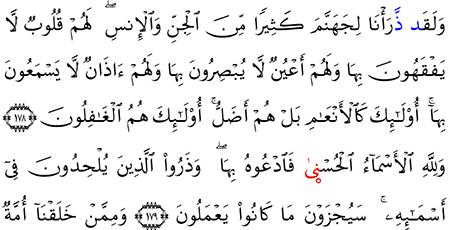 وَلَقَد ذَّرَأْنَا لِجَهَنَّمَ كَثِيرًا مِّنَ ٱلْجِنِّ وَٱلْإِنسِ ۖ لَهُمْ قُلُوبٌ لَّا
يَفْقَهُونَ بِهَا وَلَهُمْ أَعْيُنٌ لَّا يُبْصِرُونَ بِهَا وَلَهُمْ ءَاذَانٌ لَّا يَسْمَعُونَ
بِهَا ۚ أُوْلَـٰٓئِكَ كَٱلْأَنْعَـٰمِ بَلْ هُمْ أَضَلُّ ۚ أُوْلَـٰٓئِكَ هُمُ ٱلْغَـٰفِلُونَ ﴿١٧٨﴾
وَلِلَّهِ ٱلْأَسْمَآءُ ٱلْحُسْنىٰ فَٱدْعُوهُ بِهَا ۖ وَذَرُواْ ٱلَّذِينَ يُلْحِدُونَ فِىٓ
أَسْمَـٰٓئِهِۦ ۚ سَيُجْزَوْنَ مَا كَانُواْ يَعْمَلُونَ ﴿١٧٩﴾ وَمِمَّنْ خَلَقْنَآ أُمَّةٌ